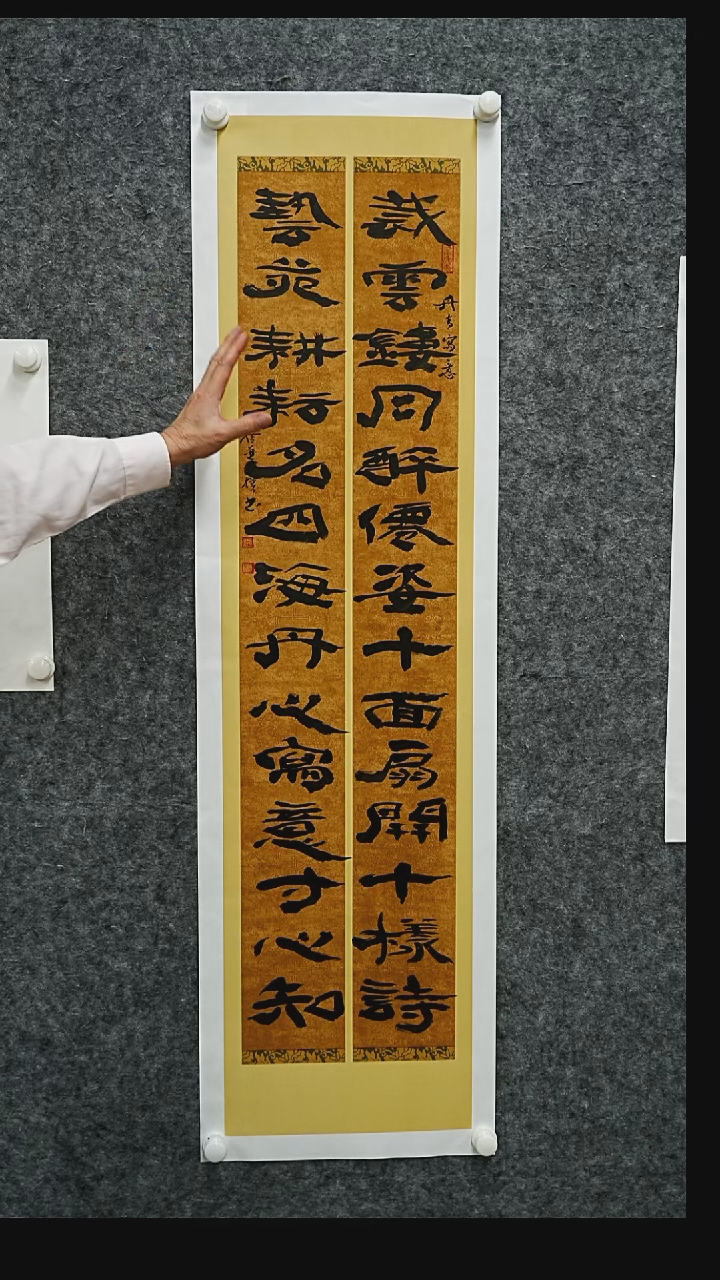 裁雲鏤月醉僊姿十面扇開十樣詩
丹青寫意
藝苑耕耘名四海丹心寫意寸心知